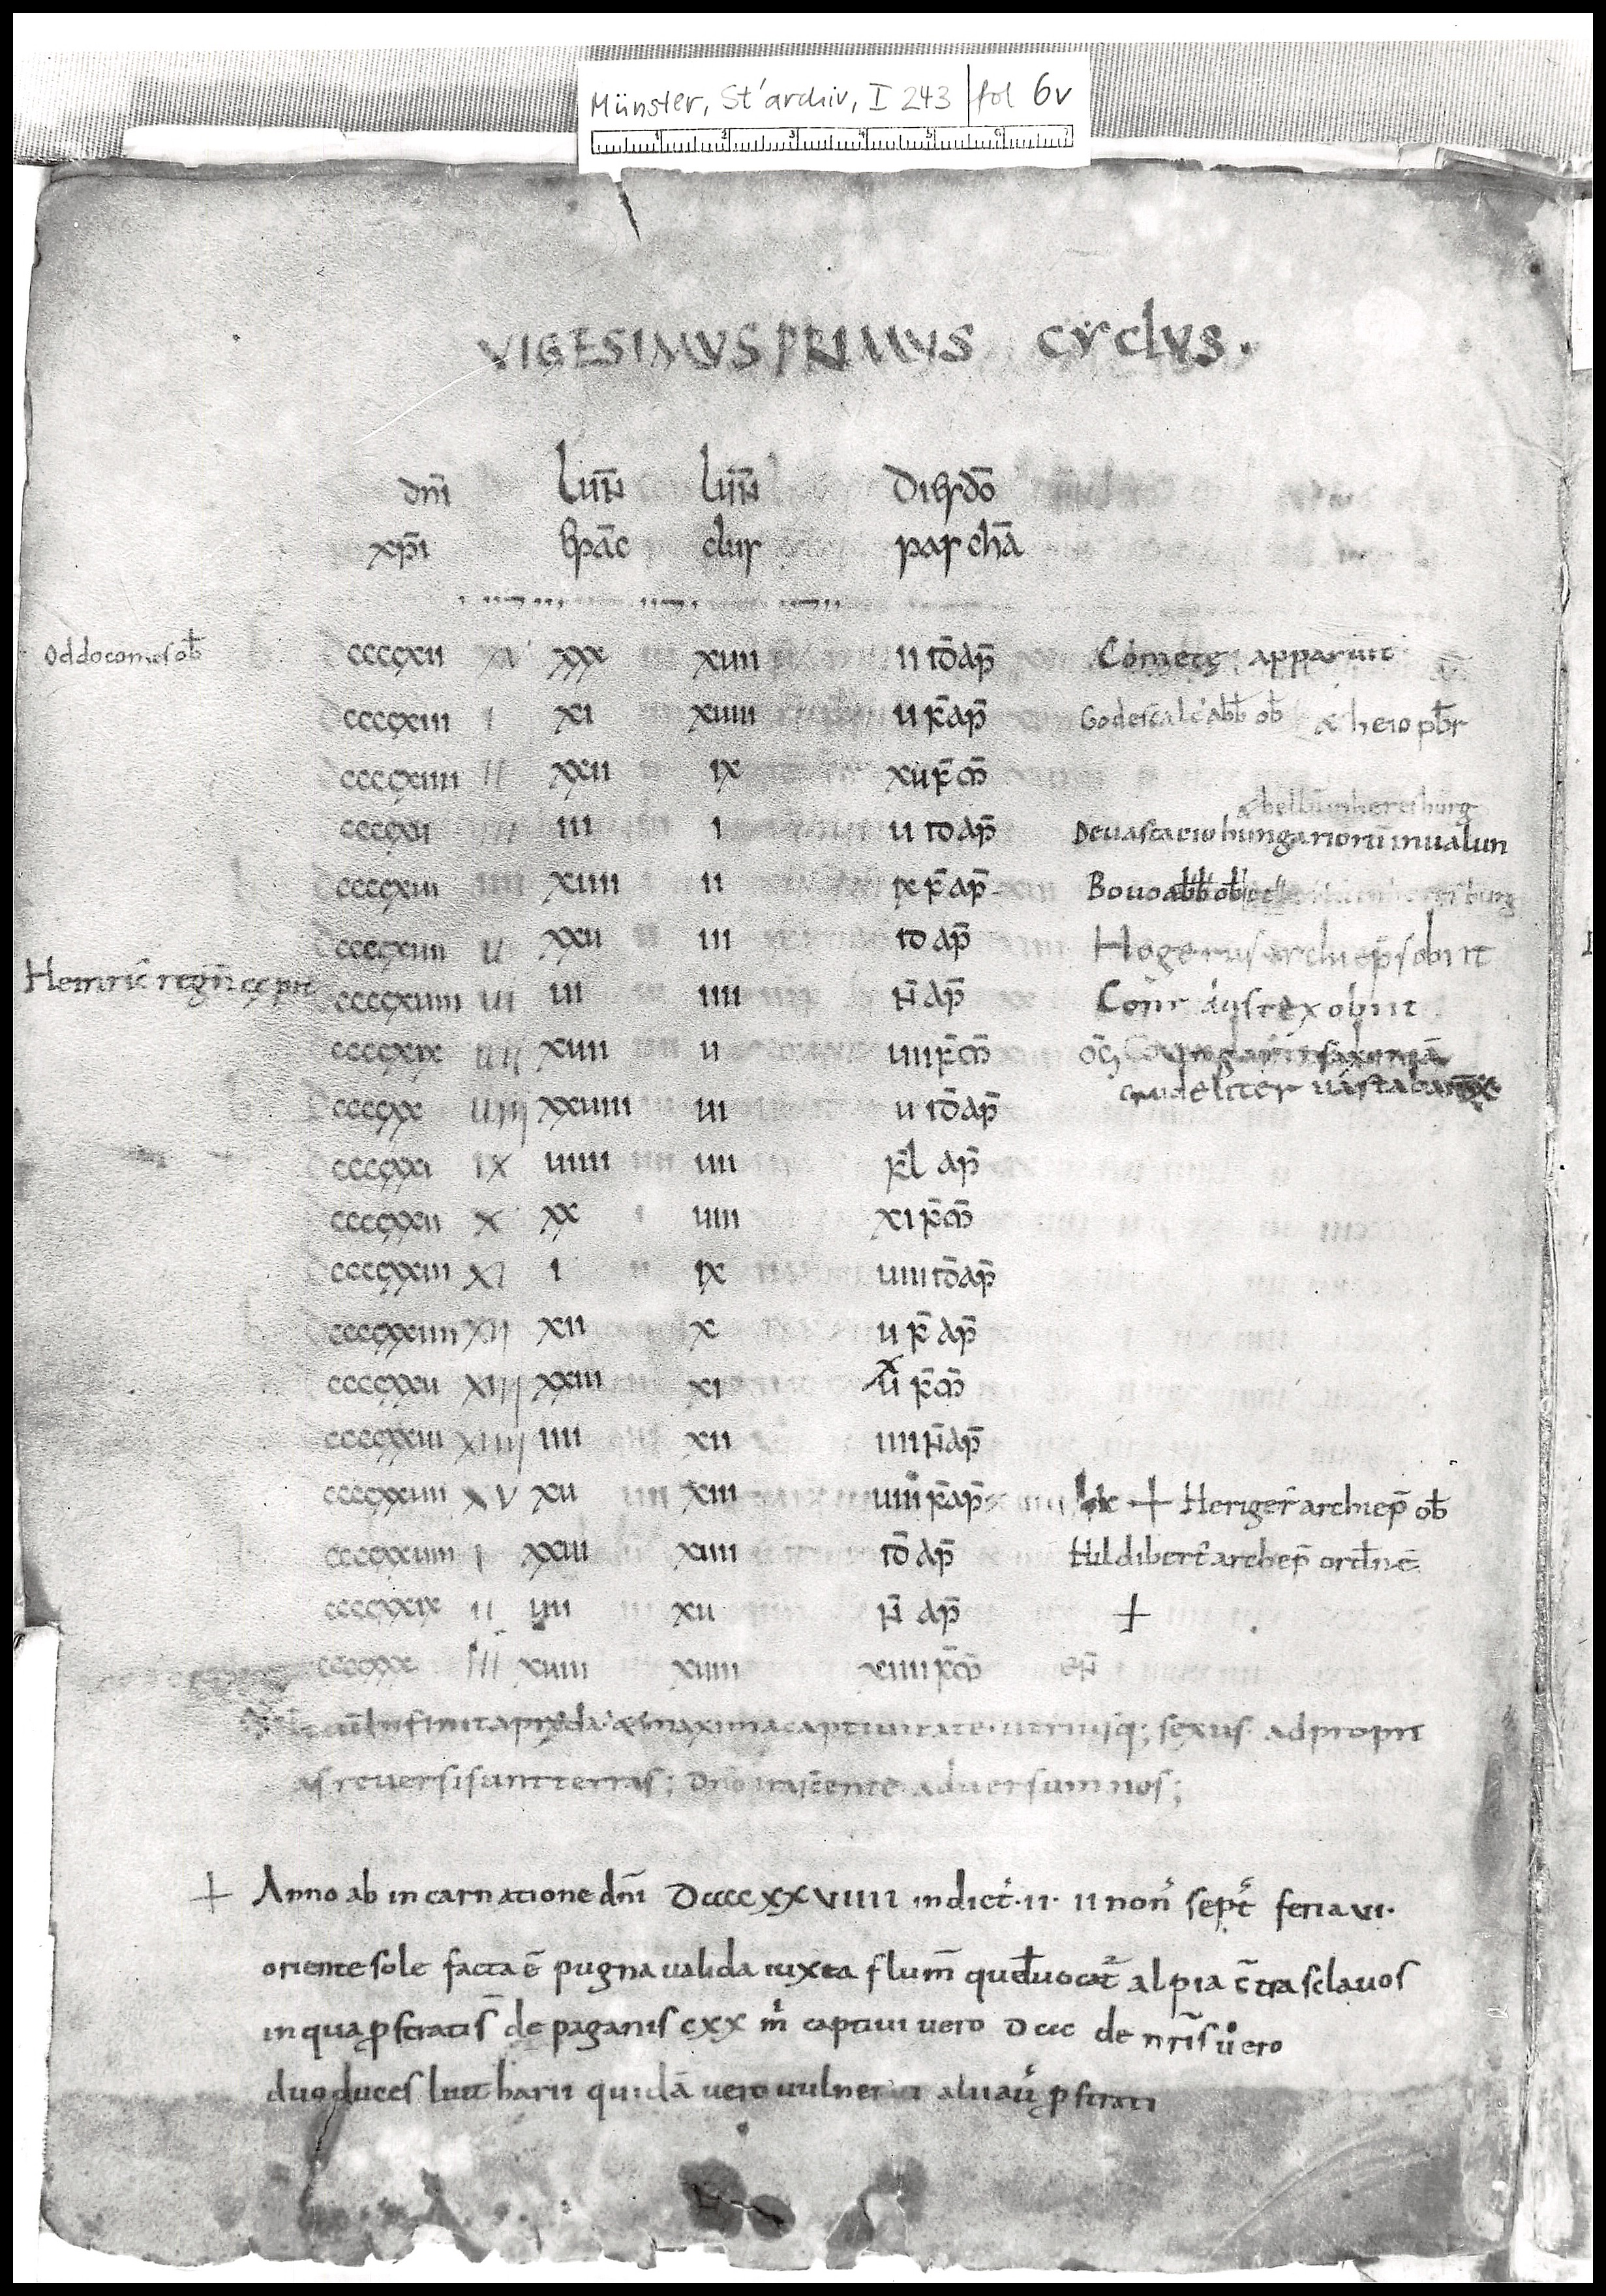 Münster, St'archiv, I 243 | fol 6v
1 2 3 4 5 6 7
VIGESIMUS PRIMUS CYCLUS.
dnī lūn lūn diesdō
xpī epāc clus paschā
Oddo comes ob̄ ccccxii xv xxx xviii ii id̄ ap̄ Comete apparuit
ccccxiii i xi xviiii v k̄ ap̄ Godescalc abb̄ ob̄ & heio pb̄r
ccccxiiii ii xxii ix xii k̄ m̄
& helb in heresburg
ccccxv iii iii i v id ap̄ Devastatio hungariorū in ualun
ccccxvi iiii xiiii ii ix k̄ ap̄ Bouo abb̄ ob̄
ccccxvii v xxv iii id ap̄ Hogerus archiep̄s obiit
Heinric̄ regn̄ cępit
ccccxviii vi vi iiii n̄ ap̄ Conr dus rex obiit
ccccxix vii xvii v iiii k̄ m̄
crudeliter uastabant
ccccxx viii xxviii vi v id̄ ap̄
ccccxxi ix viiii vii kl̄ ap̄
ccccxxii x xx viii xi k̄ m̄
ccccxxiii xi i ix viii id̄ ap̄
ccccxxiiii xii xii x v k̄ ap̄
ccccxxv xiii xxiii xi xv k̄ m̄
ccccxxvi xiiii iiii xii iiii n̄ ap̄
ccccxxvii xv xv xiii viiii k̄ ap̄ + Heriger archiep̄ ob̄
ccccxxviii i xxvi xiiii id̄ ap̄ Hildibert archiep̄ ordinat̄
ccccxxix ii vii xv n̄ ap̄ +
ccccxxx iii xviii xvi xiiii k̄ m̄
cū infinita pręda & maxima captiuitate utriusq; sexus ad propri
as reuersi sunt terras; dn̄o irascente aduersum nos;
+ Anno ab incarnatione dnī Dccccxxviiii indict̄ .ii. ii non̄ sept̄ feria vi.
oriente sole facta ē pugna ualida iuxta flum̄ quod uocat̄ alpia c̄tra sclauos
in qua p̄stratis de paganis cxx m̄ captiui uero Dccc de nr̄is uero
duo duces liutharii quidā uero uulnerati alii au p̄strati